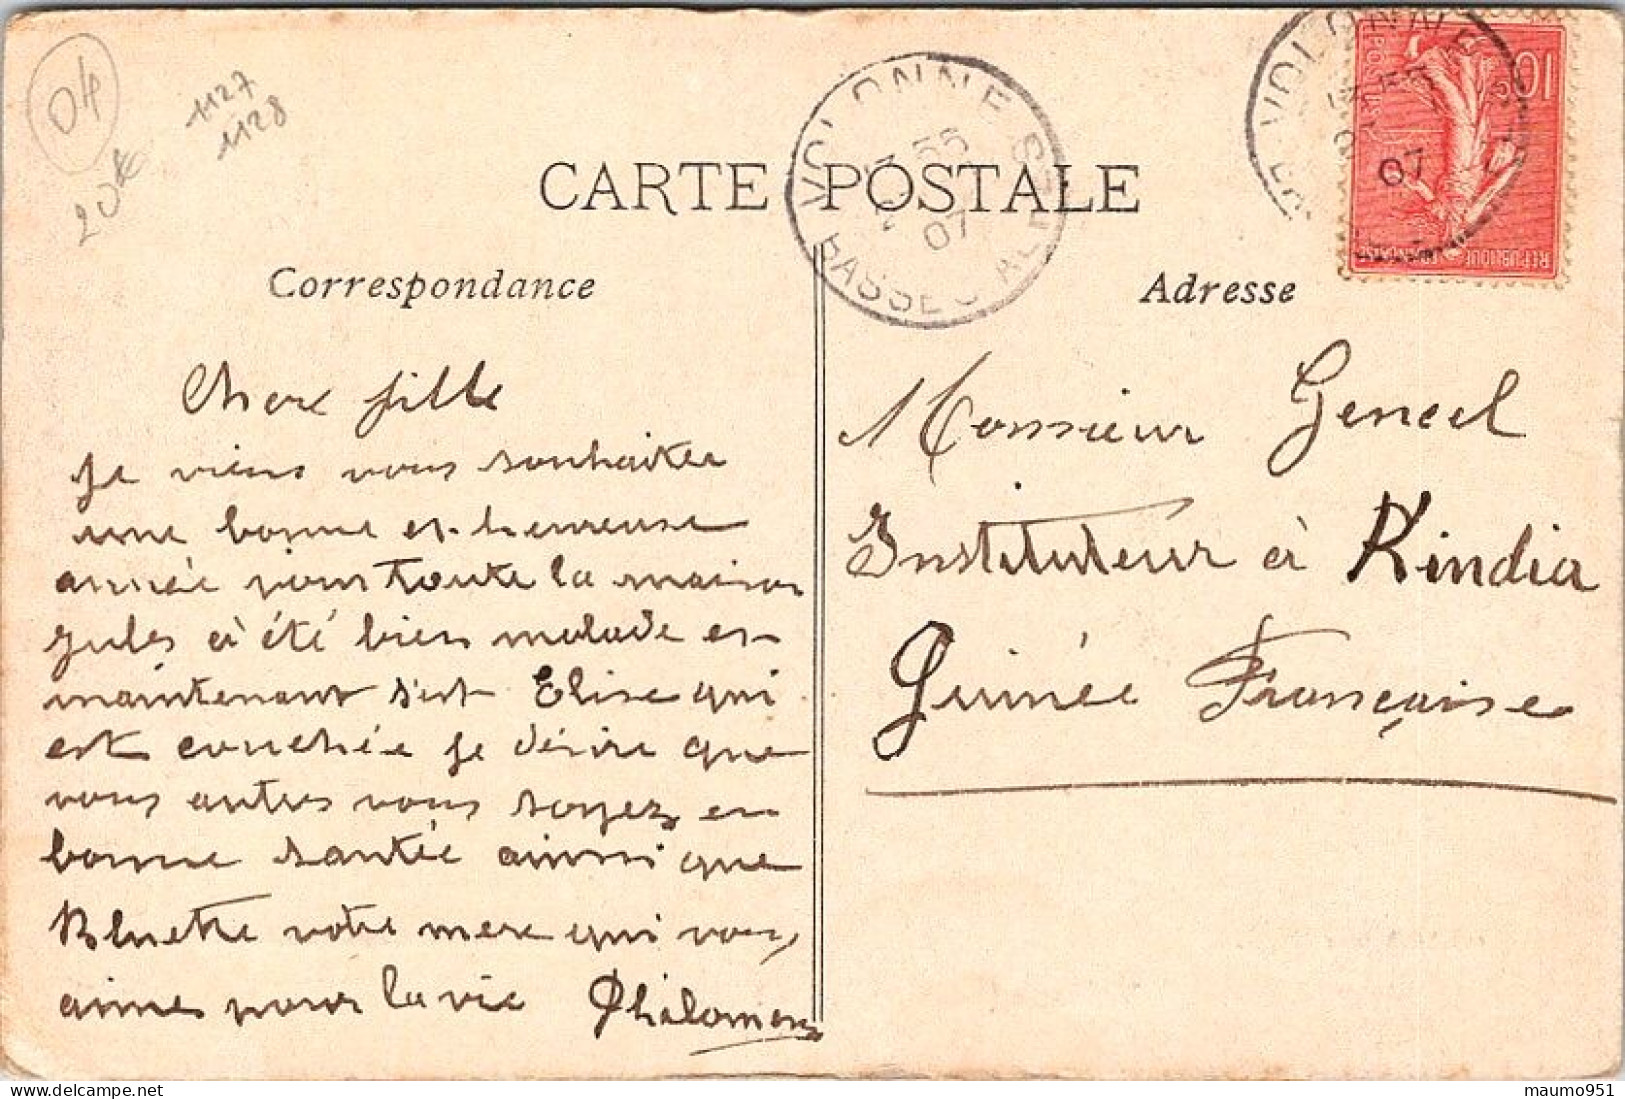 04
20€
1127
1128
CARTE POSTALE
VOLONNE
BASSES ALPES
07
07
10c
POSTES
REPUBLIQUE FRANÇAISE
Correspondance
Chere fille
Je viens vous souhaiter
une bonne et heureuse
année pour toute la maison
Jules à été bien malade et
maintenant s'est Elise qui
est couchée je désire que
vous autres vous soyez en
bonne santée ainsi que
Bluette votre mere qui vous
aimes pour la vie Philomene
Adresse
Monsieur Gencel
Instituteur à Kindia
Guinée Française
maumo951